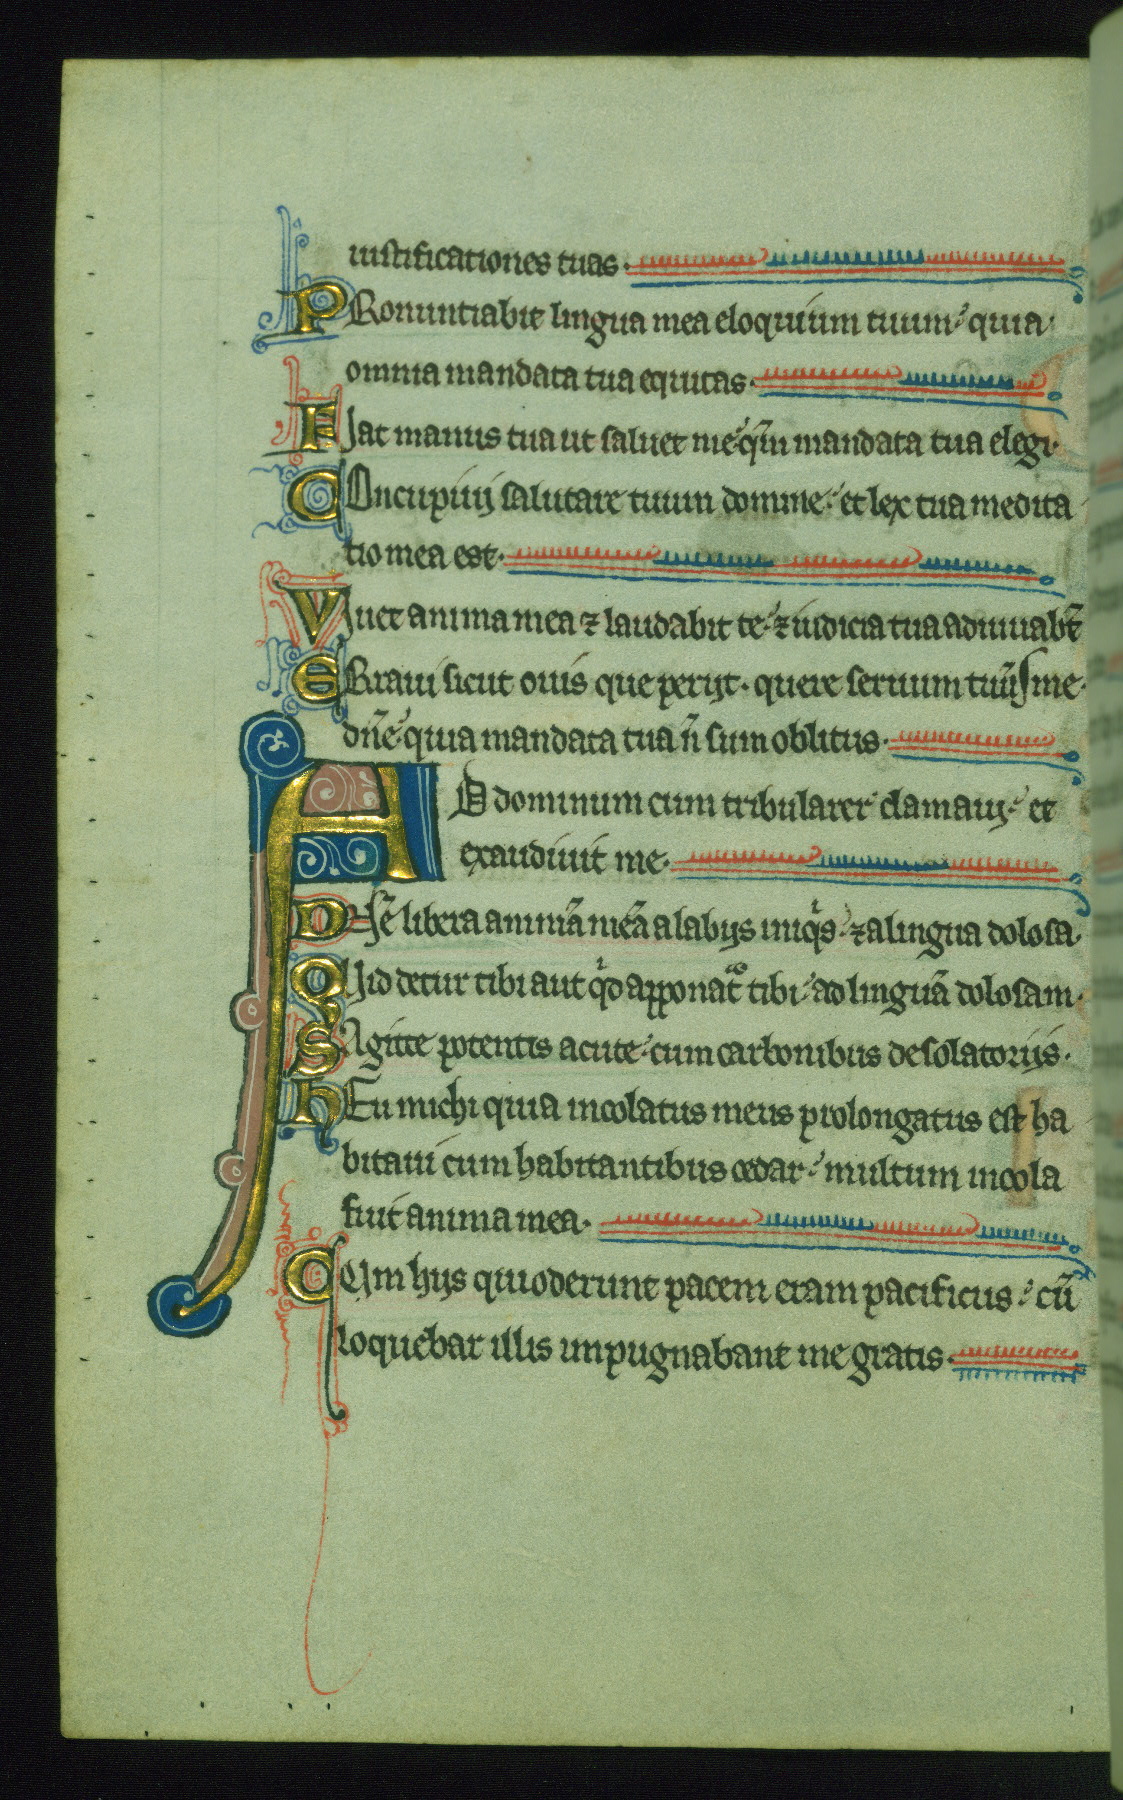 iustificationes tuas.
PRonuntiabit lingua mea eloquium tuum: quia
omnia mandata tua equitas.
FIat manus tua ut saluet me: qm̄ mandata tua elegi.
COncupiuij salutare tuum domine: et lex tua medita
tio mea est.
VIuet anima mea ⁊ laudabit te: ⁊ iudicia tua adiuuabt̄
ERraui sicut ouis que perijt. quere seruum tuū me
dn̄e: quia mandata tua n̄ sum oblitus.
AD dominum cum tribularer clamauij: et
exaudiuit me.
DNe̅ libera animā meā a labijs iniqͥs: ⁊ a lingua dolosa.
QUid detur tibi aut qͥd apponat̄ tibi: ad linguā dolosam.
SAgitte potentis acute: cum carbonibus desolatorijs.
HEu michi quia incolatus meus prolongatus est ha
bitaui cum habitantibus cedar: multum incola
fuit anima mea.
CUm hijs qui oderunt pacem eram pacificus: cū
loquebar illis inpugnabant me gratis.